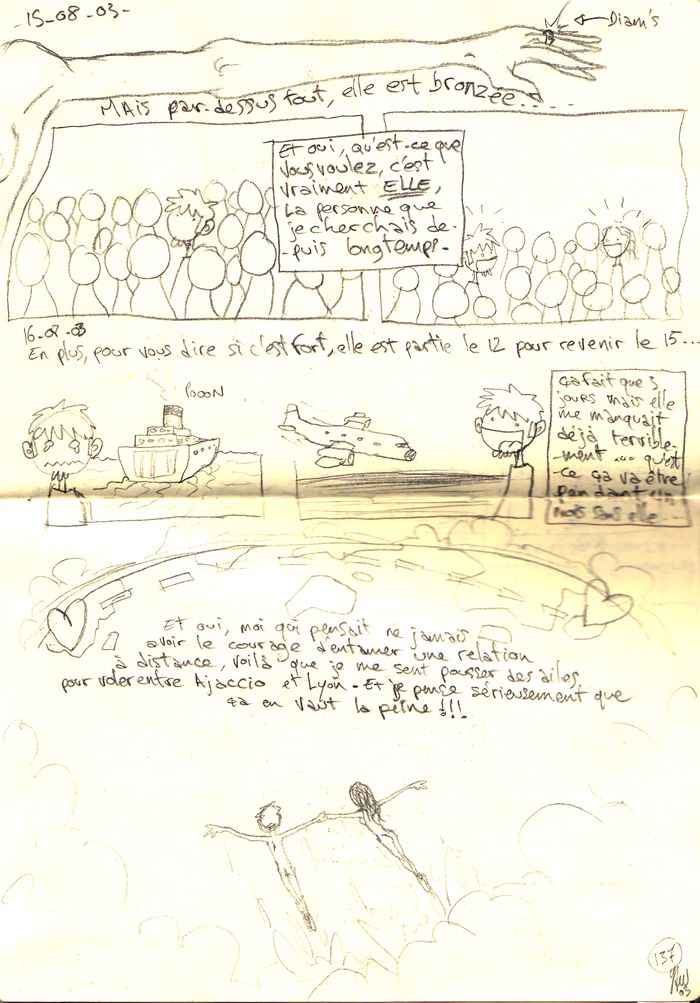 -15-08-03-
Diam's
Mais par-dessus tout, elle est bronzée.....
Et oui, qu'est-ce que
vous voulez, c'est
vraiment ELLE,
La personne que
je cherchais de-
-puis longtemps-
16-08-03
En plus, pour vous dire si c'est fort, elle est partie le 12 pour revenir le 15...
POOON
ça fait que 3
jours mais elle
me manquait
déjà terrible-
-ment... qu'est
-ce ça va être
pendant un
mois sans elle...
Et oui, moi qui pensait ne jamais
avoir le courage d'entamer une relation
à distance, voilà que je me sent pousser des ailes
pour voler entre Ajaccio et Lyon. Et je pense sérieusement que
ça en vaut la peine !!!
137
03